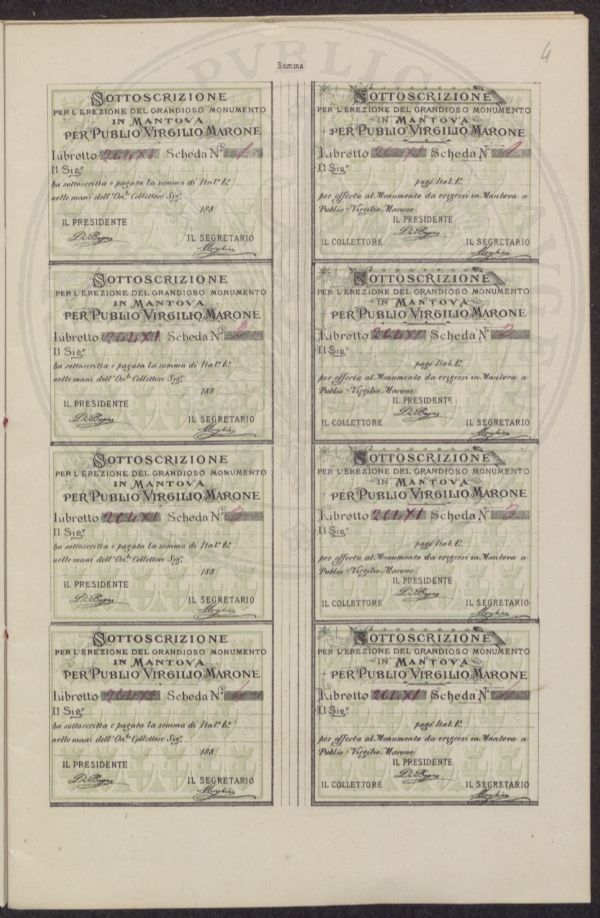 4
Somma
SOTTOSCRIZIONE
PER L'EREZIONE DEL GRANDIOSO MONUMENTO
IN MANTOVA
PER PUBLIO VIRGILIO MARONE
Libretto 264XI Scheda N° 1
Il Sigr
ha sottoscritta e pagata la somma di Ital.e L.
nelle mani dell'On.le Collettore Sig.r
188
IL PRESIDENTE
IL SEGRETARIO
SOTTOSCRIZIONE
PER L'EREZIONE DEL GRANDIOSO MONUMENTO
IN MANTOVA
PER PUBLIO VIRGILIO MARONE
Libretto 264XI Scheda N° 1
Il Sigr
pagò Ital. L.
per offerta al Monumento da erigersi in Mantova a
Publio Virgilio Marone
IL PRESIDENTE
IL COLLETTORE IL SEGRETARIO
SOTTOSCRIZIONE
PER L'EREZIONE DEL GRANDIOSO MONUMENTO
IN MANTOVA
PER PUBLIO VIRGILIO MARONE
Libretto 264XI Scheda N° 2
Il Sigr
ha sottoscritta e pagata la somma di Ital.e L.
nelle mani dell'On.le Collettore Sig.r
188
IL PRESIDENTE
IL SEGRETARIO
SOTTOSCRIZIONE
PER L'EREZIONE DEL GRANDIOSO MONUMENTO
IN MANTOVA
PER PUBLIO VIRGILIO MARONE
Libretto 264XI Scheda N° 2
Il Sigr
pagò Ital. L.
per offerta al Monumento da erigersi in Mantova a
Publio Virgilio Marone
IL PRESIDENTE
IL COLLETTORE IL SEGRETARIO
SOTTOSCRIZIONE
PER L'EREZIONE DEL GRANDIOSO MONUMENTO
IN MANTOVA
PER PUBLIO VIRGILIO MARONE
Libretto 264XI Scheda N° 3
Il Sigr
ha sottoscritta e pagata la somma di Ital.e L.
nelle mani dell'On.le Collettore Sig.r
188
IL PRESIDENTE
IL SEGRETARIO
SOTTOSCRIZIONE
PER L'EREZIONE DEL GRANDIOSO MONUMENTO
IN MANTOVA
PER PUBLIO VIRGILIO MARONE
Libretto 264XI Scheda N° 3
Il Sigr
pagò Ital. L.
per offerta al Monumento da erigersi in Mantova a
Publio Virgilio Marone
IL PRESIDENTE
IL COLLETTORE IL SEGRETARIO
SOTTOSCRIZIONE
PER L'EREZIONE DEL GRANDIOSO MONUMENTO
IN MANTOVA
PER PUBLIO VIRGILIO MARONE
Libretto 264XI Scheda N°
Il Sigr
ha sottoscritta e pagata la somma di Ital.e L.
nelle mani dell'On.le Collettore Sig.r
188
IL PRESIDENTE
IL SEGRETARIO
SOTTOSCRIZIONE
PER L'EREZIONE DEL GRANDIOSO MONUMENTO
IN MANTOVA
PER PUBLIO VIRGILIO MARONE
Libretto 264XI Scheda N°
Il Sigr
pagò Ital. L.
per offerta al Monumento da erigersi in Mantova a
Publio Virgilio Marone
IL PRESIDENTE
IL COLLETTORE IL SEGRETARIO